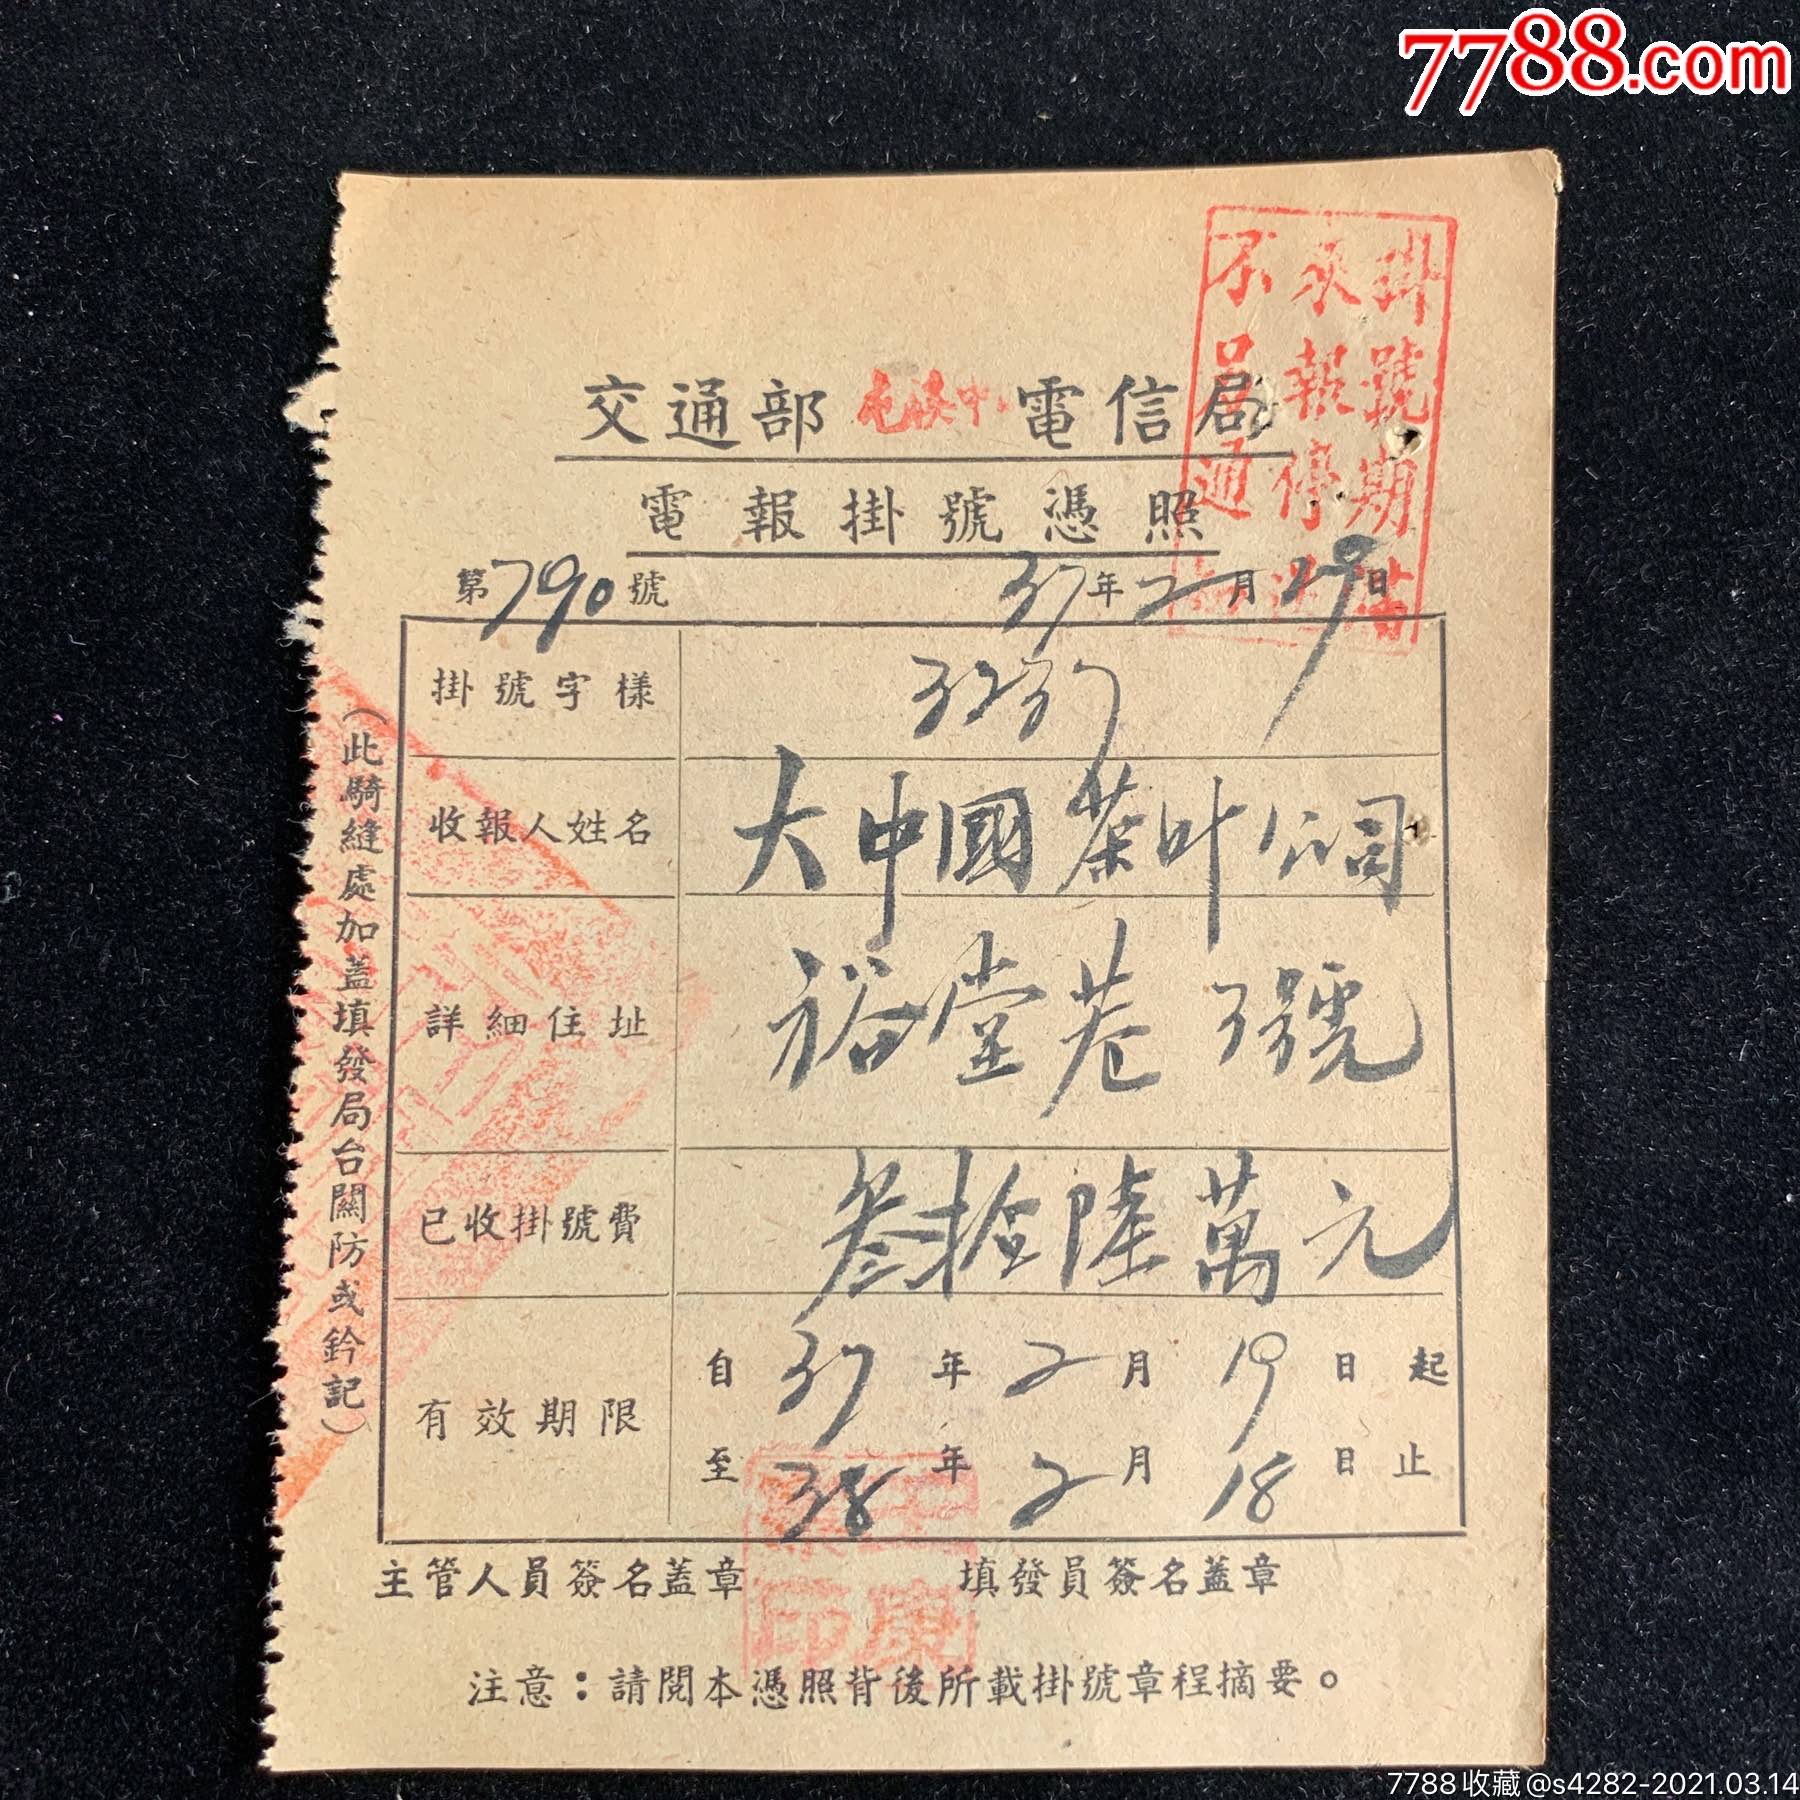 7788.com
掛號期
來報停
不另通
交通部 屯溪 電信局
電報掛號憑照
第790號 37年2月19日
掛號字樣 3237
收報人姓名 大中國茶叶公司
詳細住址 裕堂巷 3號
已收掛號費 叁拾陸萬元
有效期限
自37年2月19日起
至38年2月18日止
(此騎縫處加蓋填發局台關防或鈐記)
主管人員簽名蓋章 填發員簽名蓋章
康
印
注意：請閱本憑照背後所載掛號章程摘要。
7788收藏@s4282-2021.03.14